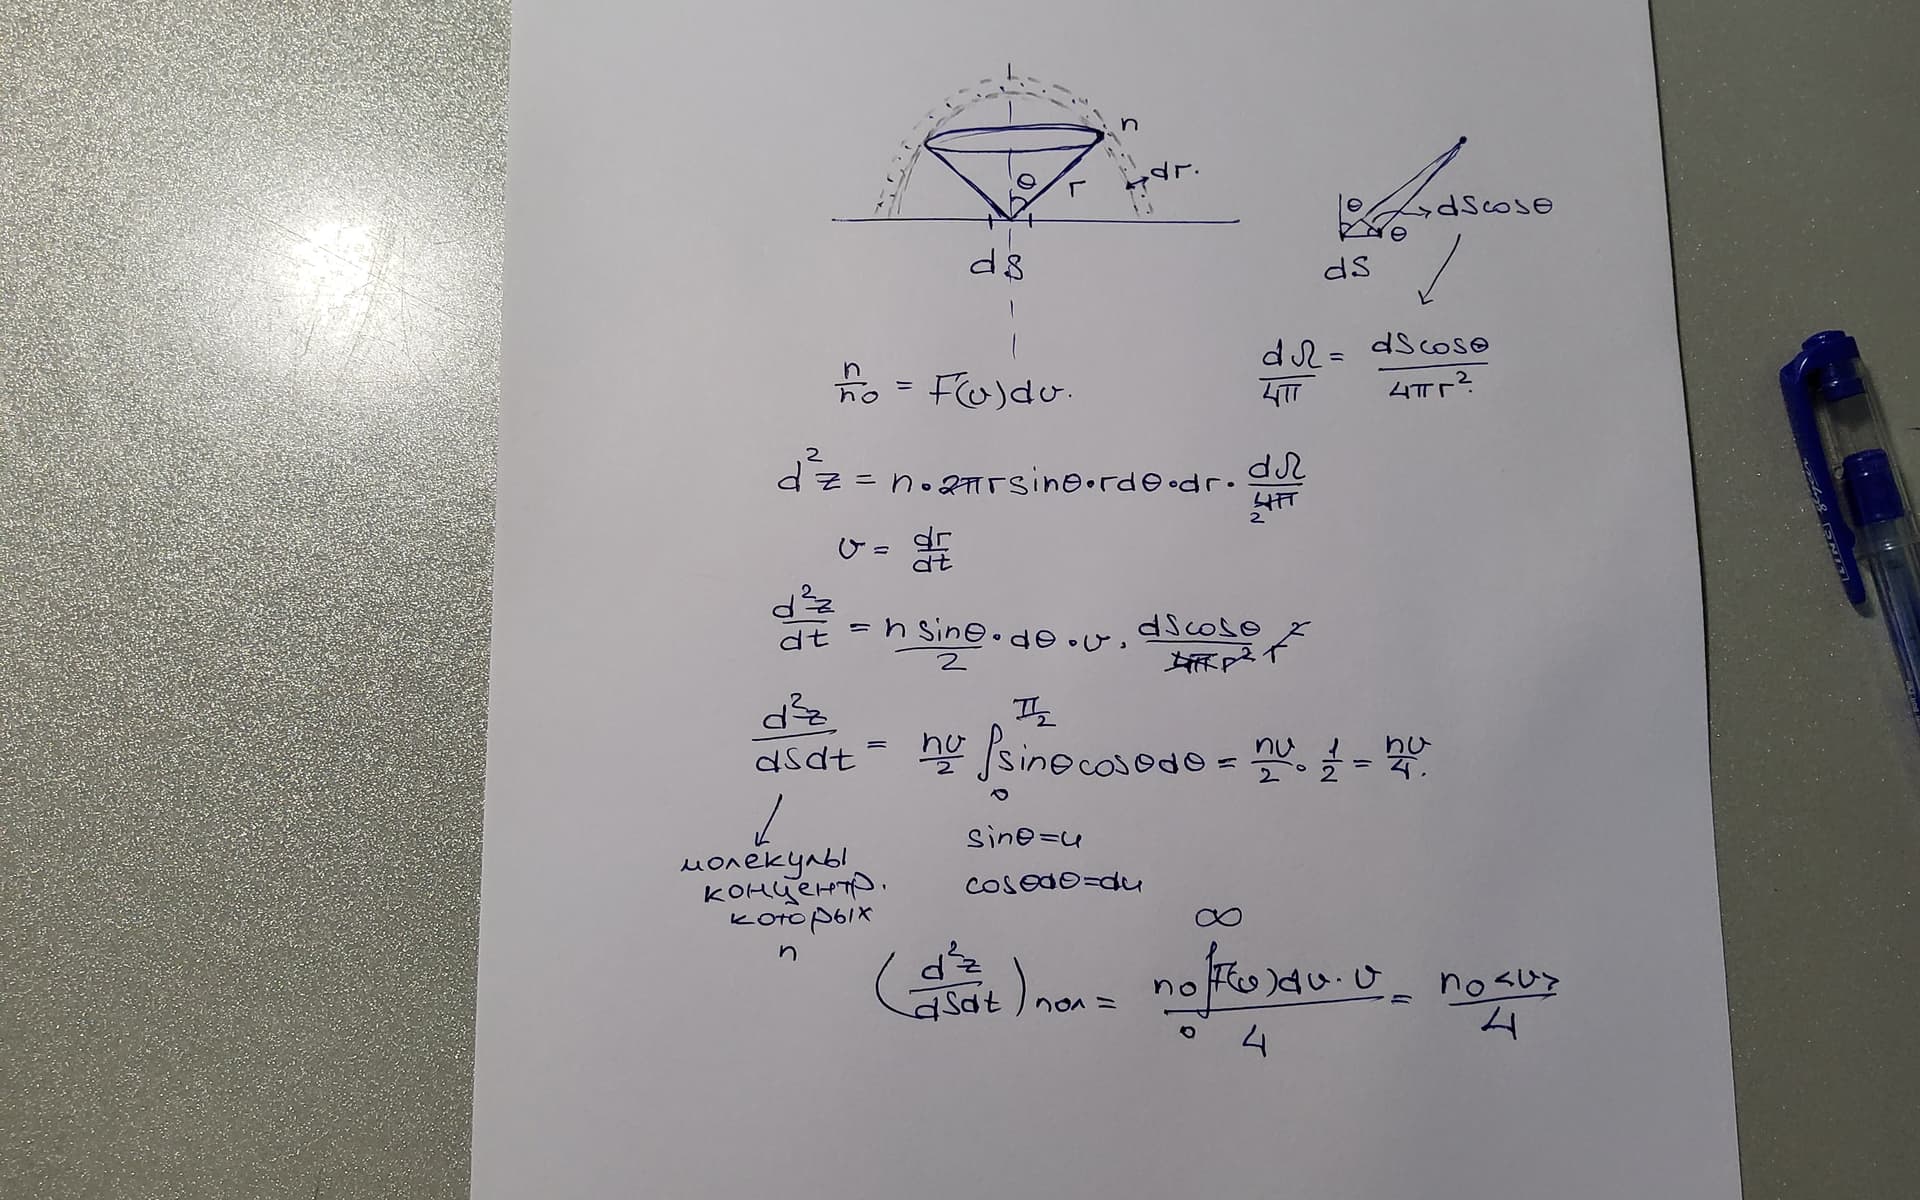 n
dr.
θ
r
dS
θ
dScosθ
θ
dS
n/n₀ = F(v)dv.
dΩ/4π = dScosθ/4πr².
d²z = n·2πrsinθ·rdθ·dr·dΩ/4π
2
v = dr/dt
d²z/dt = n sinθ/2·dθ·v·dScosθ/4πr² r²
d²z/dSdt = nv/2 ∫₀^(π/2) sinθcosθdθ = nv/2·1/2 = nv/4.
sinθ=u
cosθdθ=du
молекулы
концентр.
которых
n
(d²z/dSdt)пол = n₀∫₀^∞F(v)dv·v/4 = n₀<v>/4